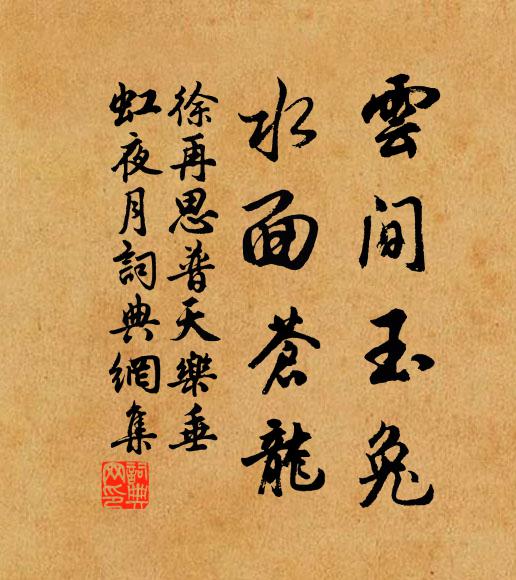 雲間玉兔
水面蒼龍
徐再思普天樂垂
虹夜月詞典網集
詞典
网印